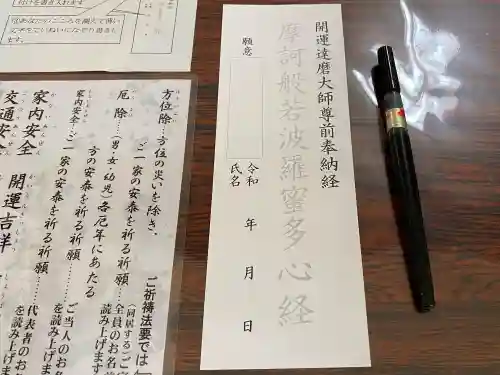 開運達磨大師尊前奉納経
摩訶般若波羅蜜多心経
願意
令和　年　月　日
氏名
方位除…方位の災いを除き、
ご一家の安泰を祈る祈願…
厄除…(男・女・幼児)各厄年にあたる
方の安泰を祈る祈願……
家内安全…ご一家の安泰を祈る祈願……
家内安全
開運吉祥
交通安全
ご祈祷法要では
(同居する)ご家
全員のお名
読み上げます
ご当人のお名
を読み上げ
代表者のお
を読み上げ
付けを書き入れます